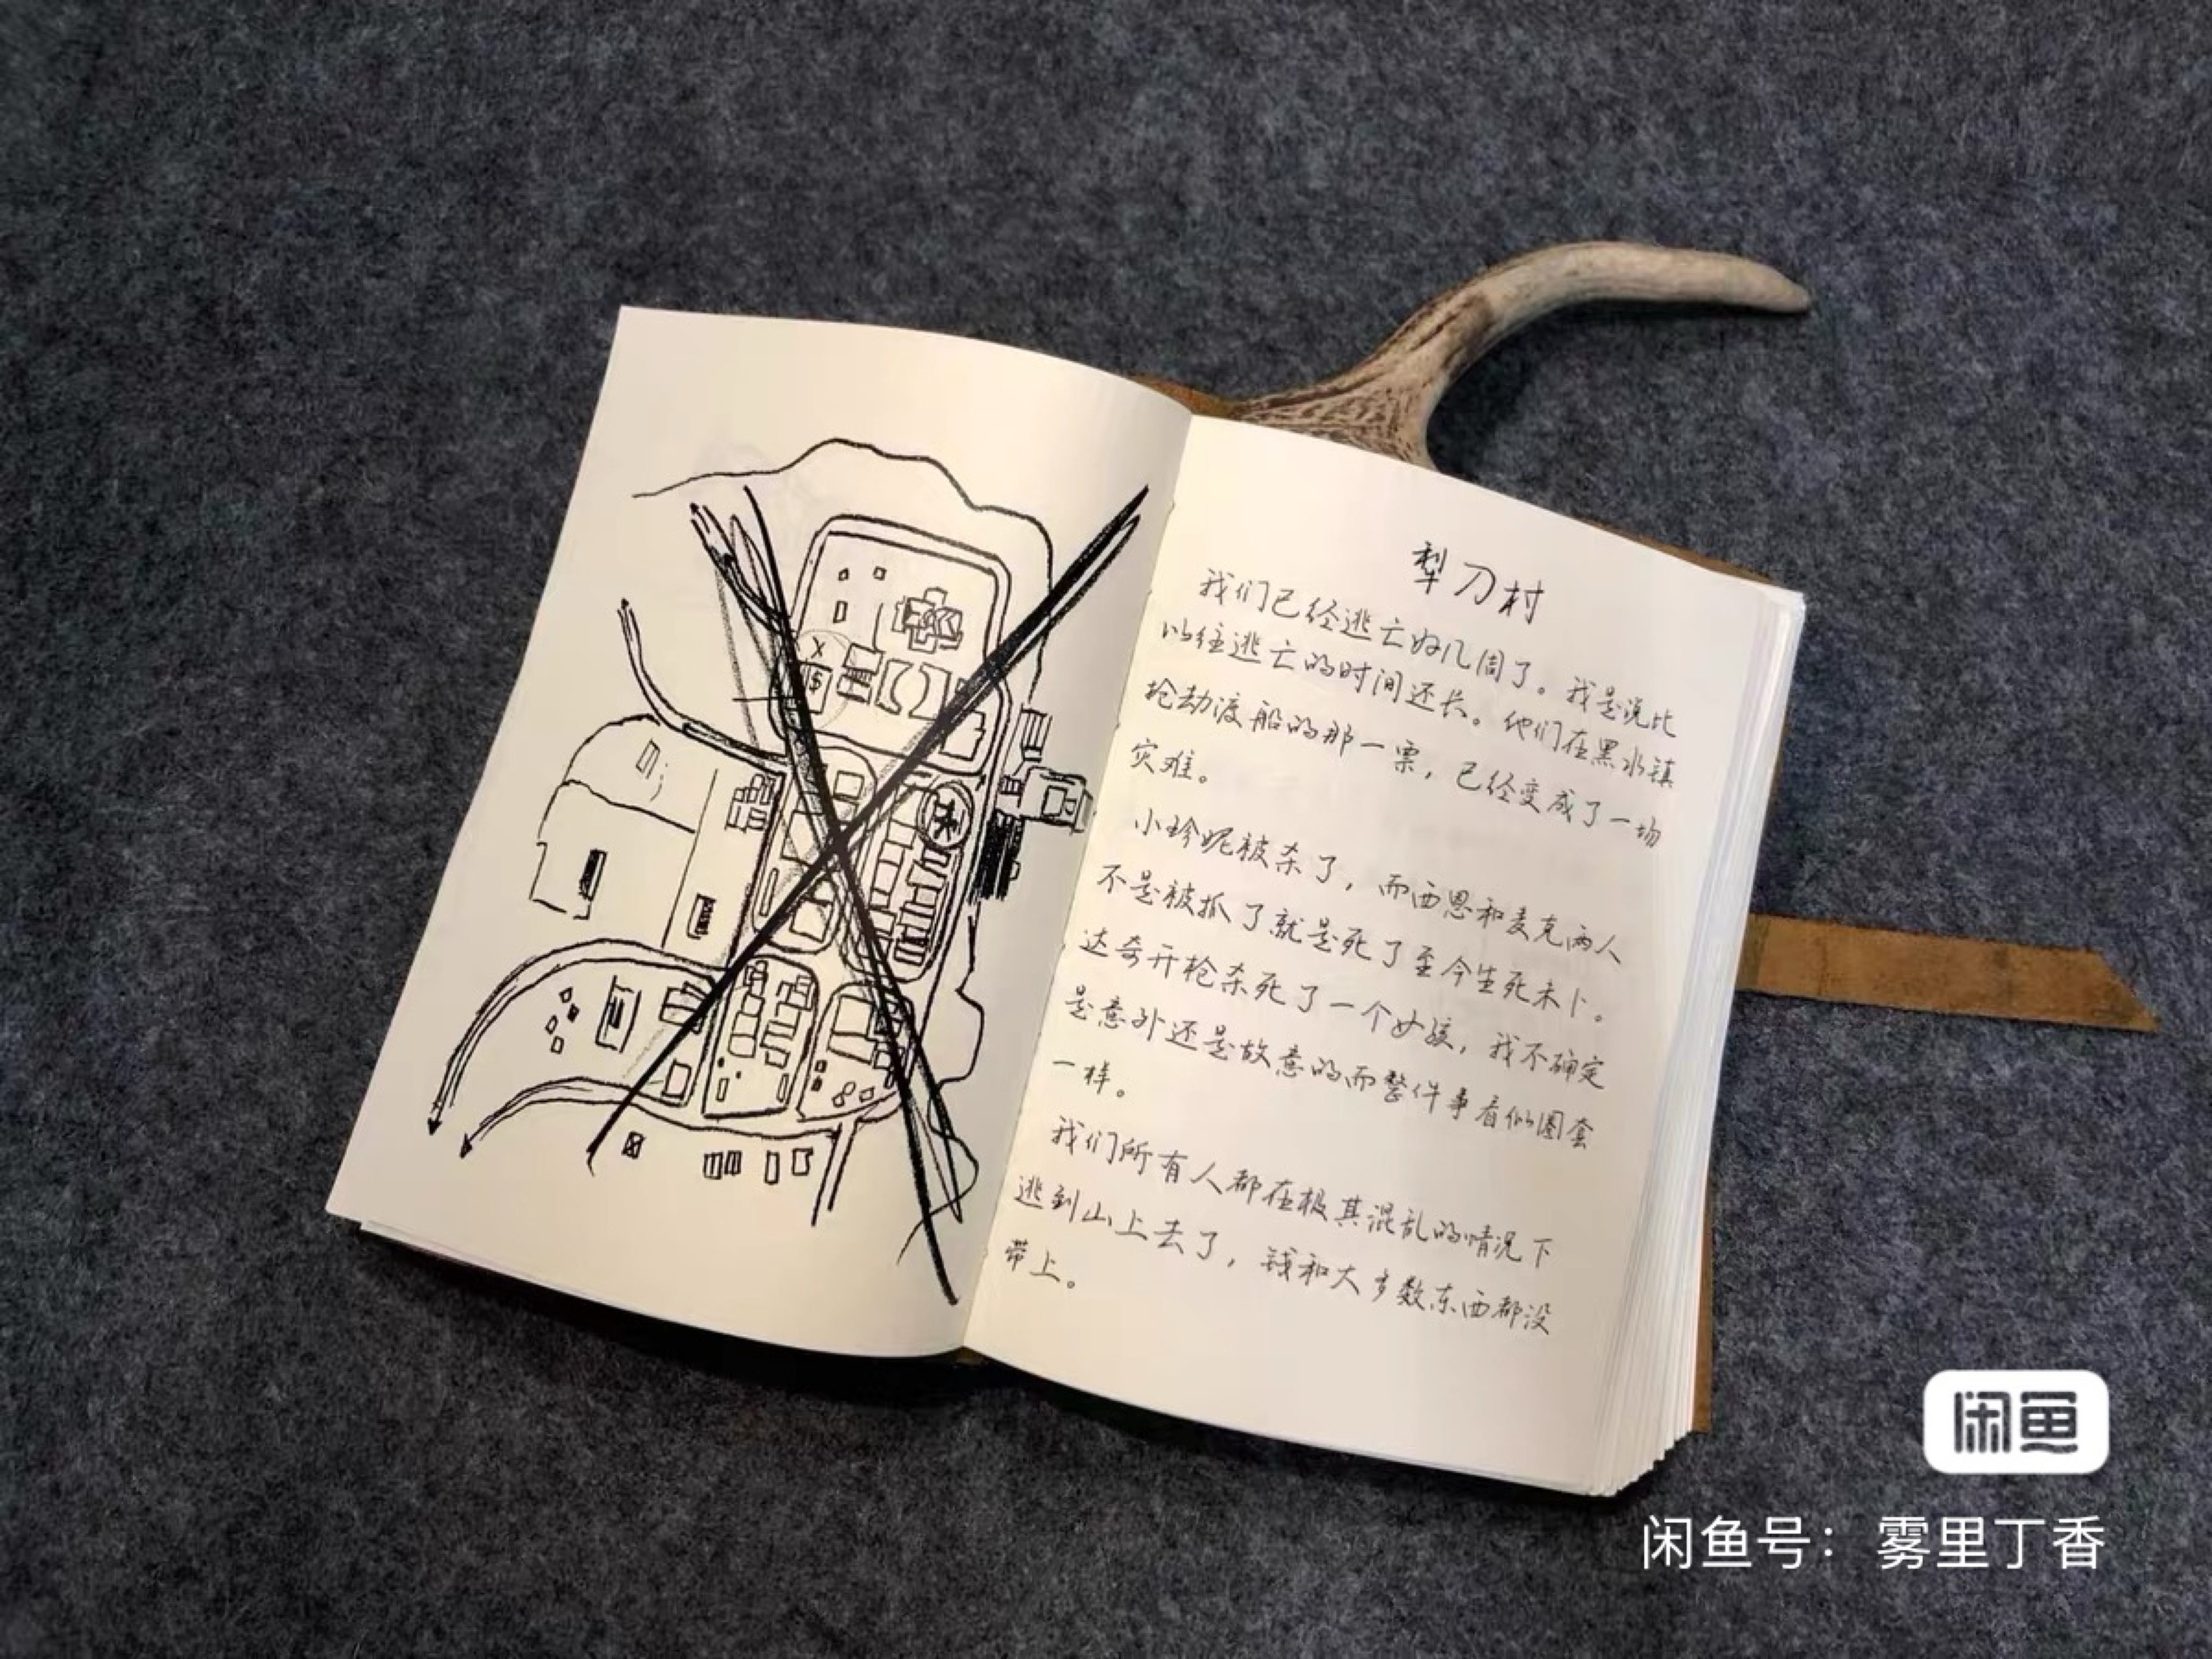 X
$
犁刀村
我们已经逃亡好几周了。我是说比
以往逃亡的时间还长。他们在黑水镇
抢劫渡船的那一票，已经变成了一场
灾难。
小珍妮被杀了，而西恩和麦克两人
不是被抓了就是死了至今生死未卜。
达奇开枪杀死了一个女孩，我不确定
是意外还是故意的而整件事看似圈套
一样。
我们所有人都在极其混乱的情况下
逃到山上去了，钱和大多数东西都没
带上。
闲鱼
闲鱼号：雾里丁香